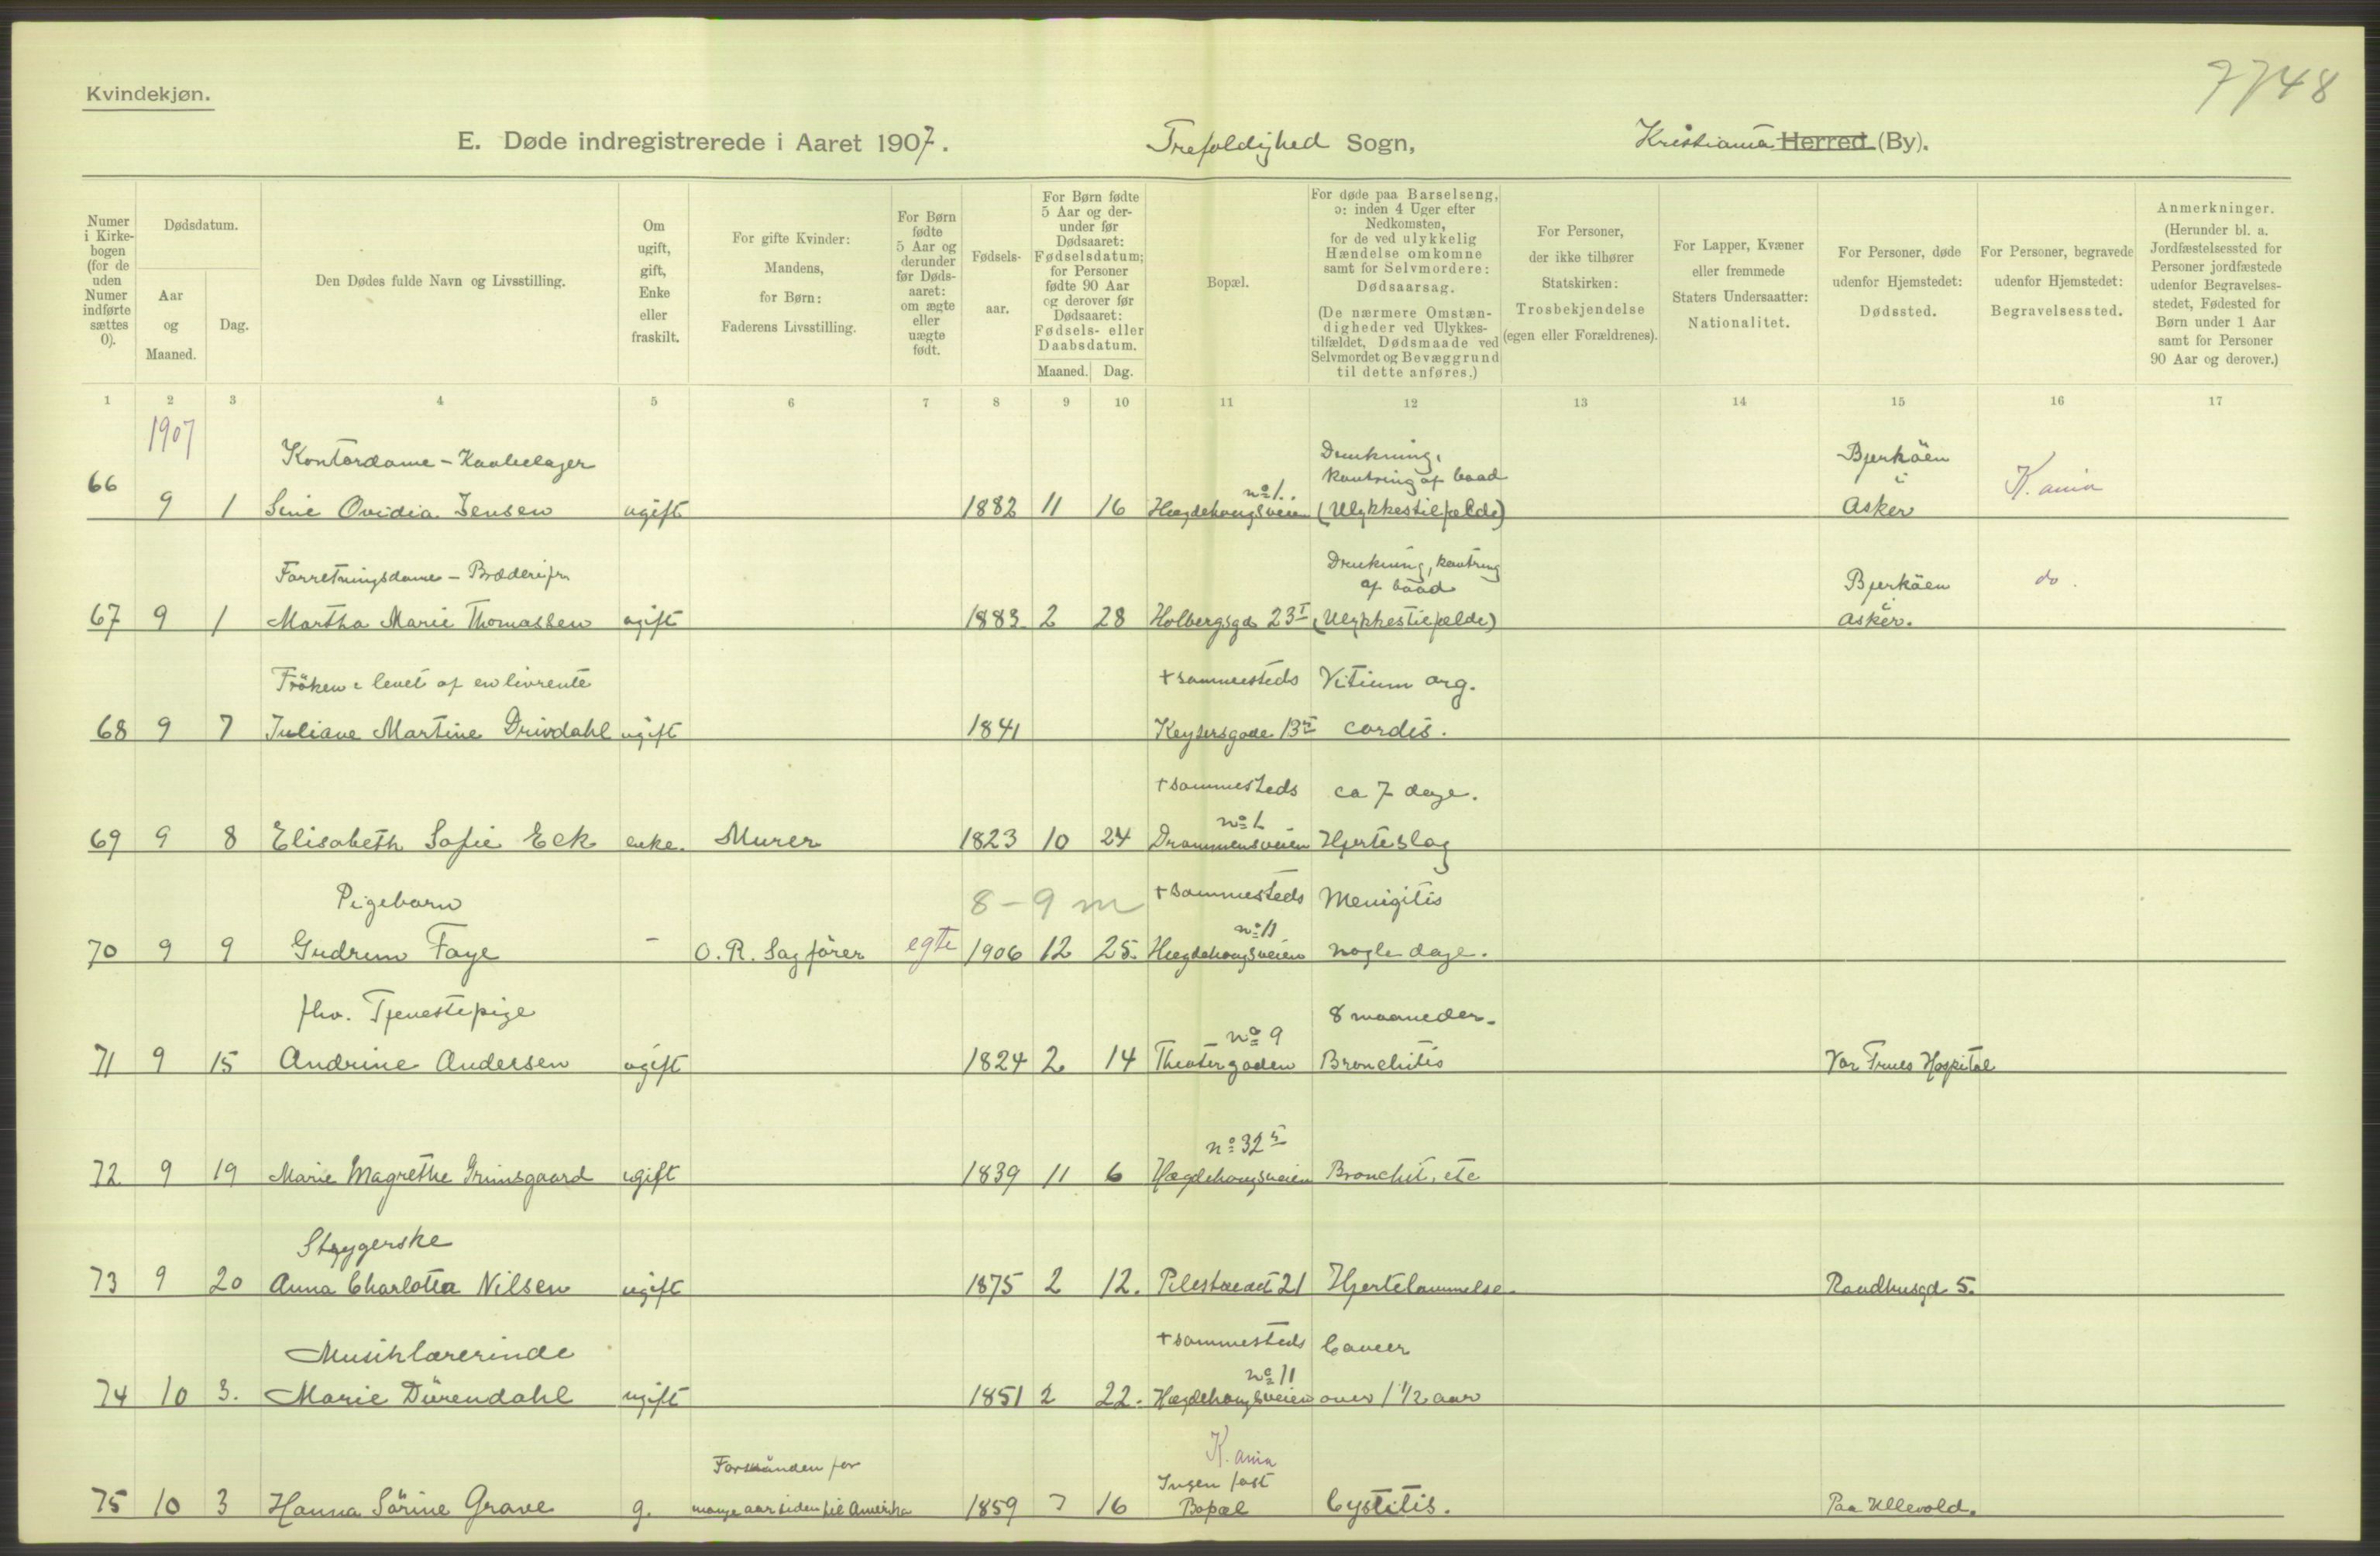 7748
Kvindekjøn.
E. Døde indregistrerede i Aaret 1907. Trefoldighed Sogn, Kristiania Herred (By).
Numer i Kirkebogen (for de uden Numer indførte sættes 0).
Dødsdatum.
Aar og Maaned.
Dag.
Den Dødes fulde Navn og Livsstilling.
Om ugift, gift, Enke eller fraskilt.
For gifte Kvinder: Mandens, for Børn: Faderens Livsstilling.
For Børn fødte 5 Aar og derunder før Dødsaaret: om ægte eller uægte født.
Fødselsaar.
For Børn fødte 5 Aar og derunder før Dødsaaret: Fødselsdatum; for Personer fødte 90 Aar og derover før Dødsaaret: Fødsels- eller Daabsdatum.
Maaned. Dag.
Bopæl.
For døde paa Barselseng, ɔ: inden 4 Uger efter Nedkomsten, for de ved ulykkelig Hændelse omkomne samt for Selvmordere: Dødsaarsag.
(De nærmere Omstændigheder ved Ulykkestilfældet, Dødsmaade ved Selvmordet og Bevæggrund til dette anføres.)
For Personer, der ikke tilhører Statskirken: Trosbekjendelse (egen eller Forældrenes).
For Lapper, Kvæner eller fremmede Staters Undersaatter: Nationalitet.
For Personer, døde udenfor Hjemstedet: Dødssted.
For Personer, begravede udenfor Hjemstedet: Begravelsessted.
Anmerkninger. (Herunder bl. a. Jordfæstelsessted for Personer jordfæstede udenfor Begravelsesstedet, Fødested for Børn under 1 Aar samt for Personer 90 Aar og derover.)
1 2 3 4 5 6 7 8 9 10 11 12 13 14 15 16 17
1907
Kontordame - Drukning, Bjerköen
kantring af baad i K.ania
66 9 1 Sine Ovidia Jensen ugift 1882 11 16 no 1. Hægdehaugsveien (Ulykkestilfælde) Asker
Forretningsdame - Broderifr. Drukning, kantring Bjerköen do.
af baad i
67 9 1 Martha Marie Thomassen ugift 1883 2 28 Holbergsgd 23 I (Ulykkestilfælde) Asker.
Fröken: levet af en livrente + sammesteds Vitium org.
68 9 7 Juliane Martine Drivdahl ugift 1841 Keysersgade 13 cordis.
+ sammesteds ca 7 dage.
no 1
69 9 8 Elisabeth Sofie Eck enke. Murer 1823 10 24 Drammensveien Hjerteslag
Pigebarn 8-9 m + sammesteds Menigitis
no 11
70 9 9 Gudrun Faye - O.R. Sagförer egte 1906 12 25. Hægdehaugsveien nogle dage.
fhv. Tjenestepige 8 maaneder.
no 9
71 9 15 Andrine Andersen ugift 1824 2 14 Theatergaden Bronchitis Vor Frues Hospital
no 32
72 9 19 Marie Magrethe Grimsgaard ugift 1839 11 6 Hægdehaugsveien Bronchit, etc
Strygerske
73 9 20 Anna Charlotta Nilsen ugift 1875 2 12. Pilestrædet 21 Hjertelammelse. Raadhusgd 5.
Musiklærerinde + sammesteds Cancer
no 11
74 10 3. Marie Dürendahl ugift 1851 2 22. Hægdehaugsveien over 1 1/2 aar
K.ania
Forsvunden for Ingen fast
75 10 3 Hanna Sörine Grave g. mange aar siden til Amerika 1859 7 16 Bopæl Cystitis. Paa Ullevold.